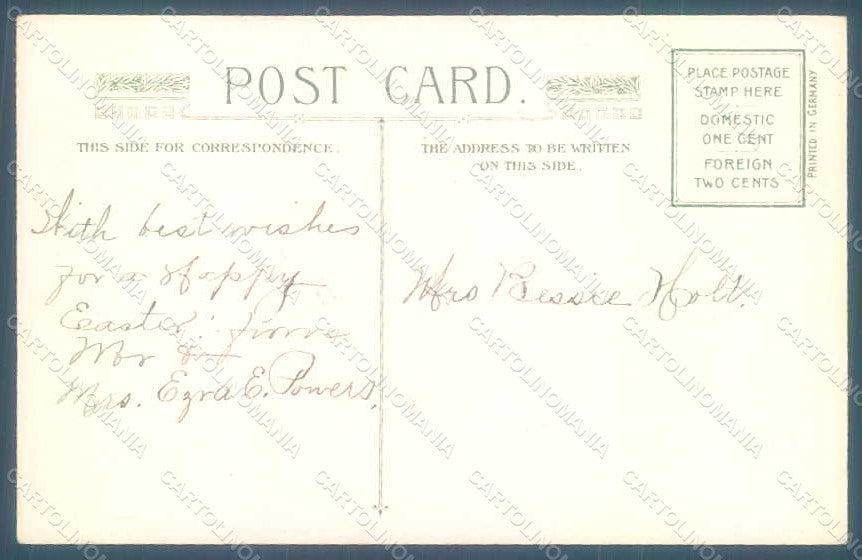 POST CARD.
PLACE POSTAGE
STAMP HERE
DOMESTIC
ONE CENT
FOREIGN
TWO CENTS
PRINTED IN GERMANY
THIS SIDE FOR CORRESPONDENCE.
THE ADDRESS TO BE WRITTEN
ON THIS SIDE.
With best wishes
for a Happy
Easter. From
Mr &
Mrs. Ezra E. Powers.
Mrs Bessie Holt.
CARTOLINOMANIA